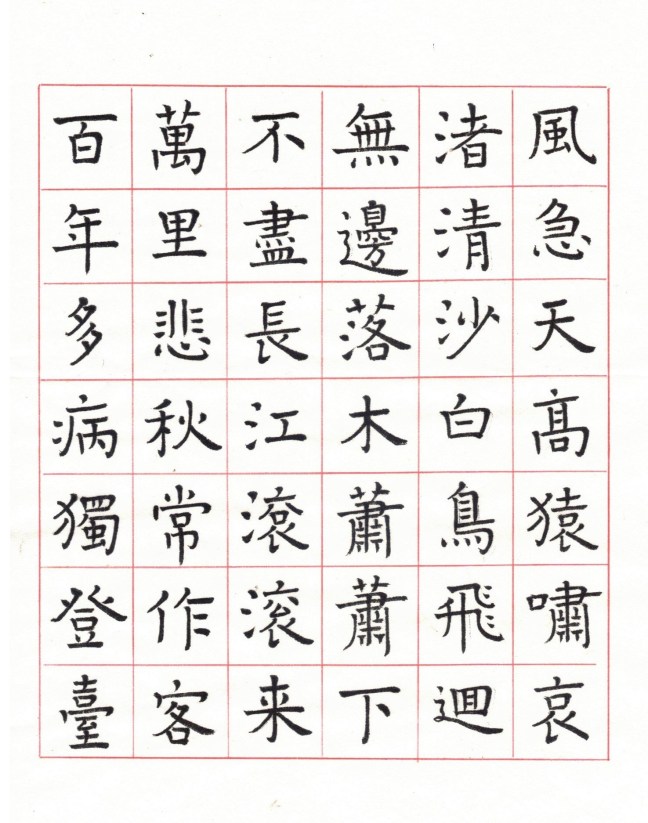 風急天高猿嘯哀
渚清沙白鳥飛迴
無邊落木蕭蕭下
不盡長江滾滾来
萬里悲秋常作客
百年多病獨登臺